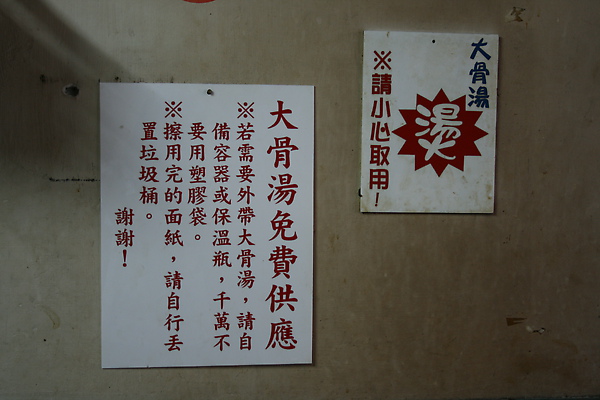 大骨湯免費供應
※若需要外帶大骨湯，請自
備容器或保溫瓶，千萬不
要用塑膠袋。
※擦用完的面紙，請自行丟
置垃圾桶。
謝謝！
大骨湯
燙
※請小心取用！